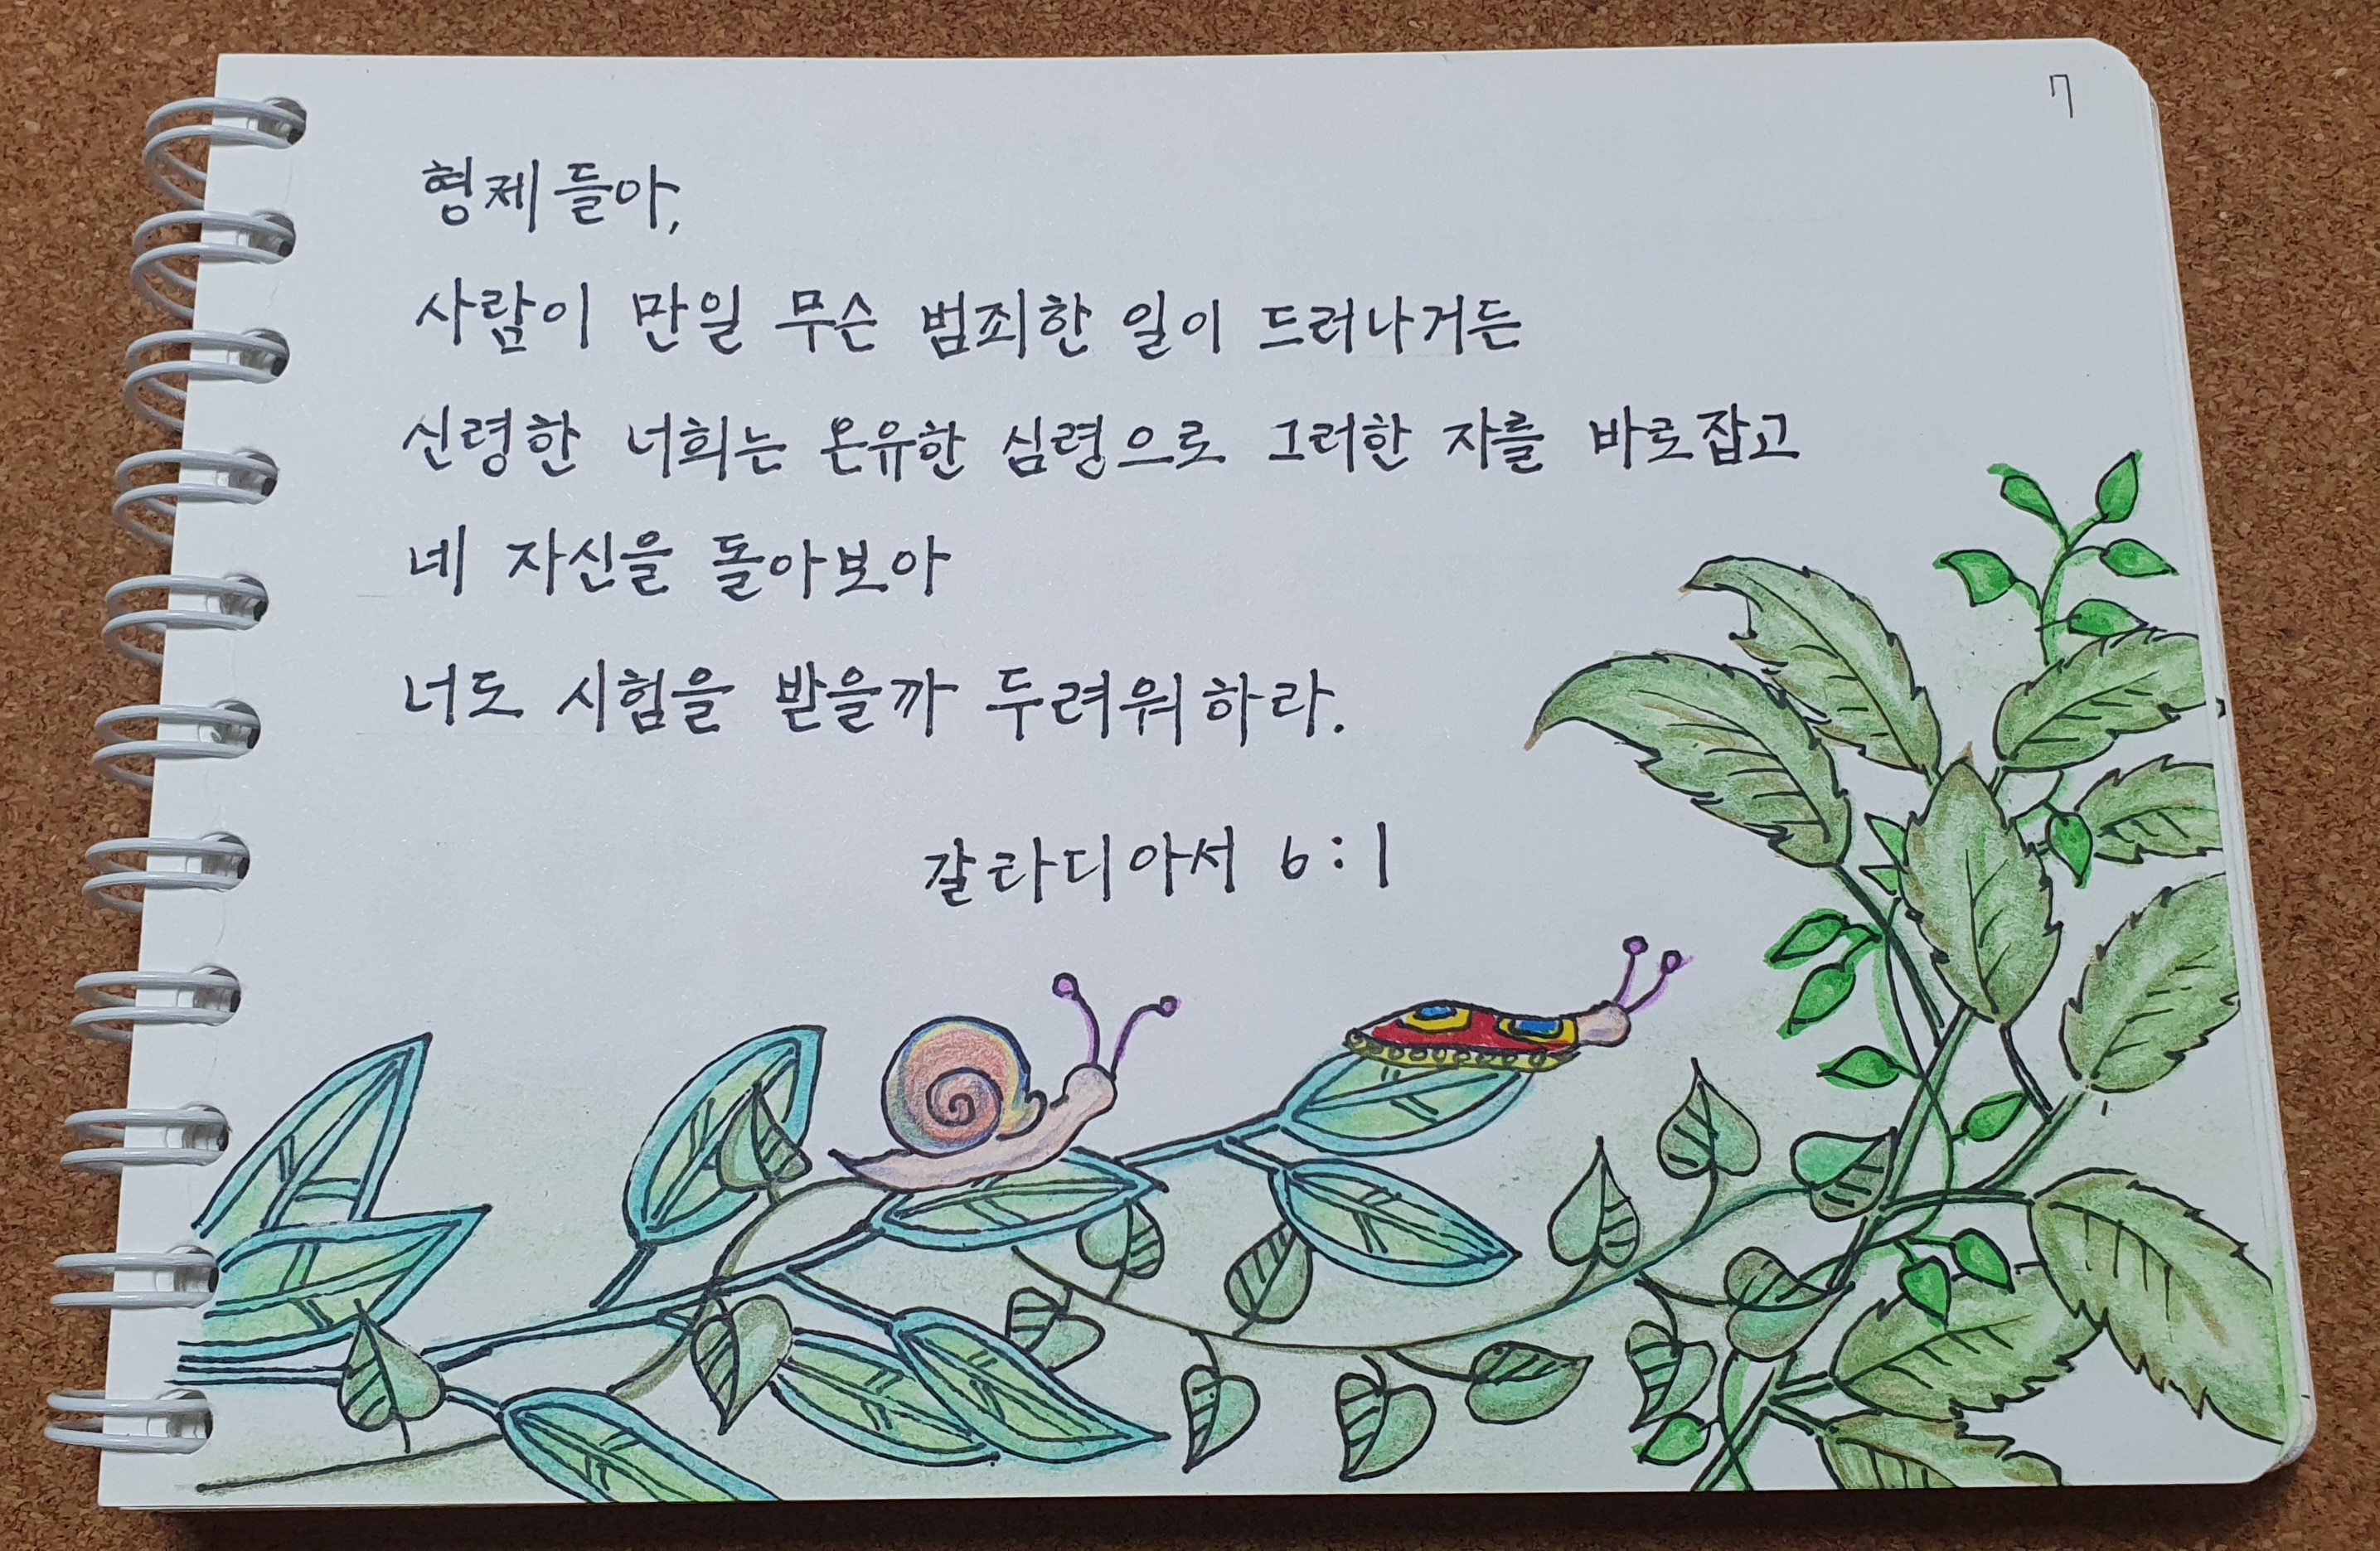 7
형제들아,
사람이 만일 무슨 범죄한 일이 드러나거든
신령한 너희는 온유한 심령으로 그러한 자를 바로잡고
네 자신을 돌아보아
너도 시험을 받을까 두려워하라.
갈라디아서 6:1